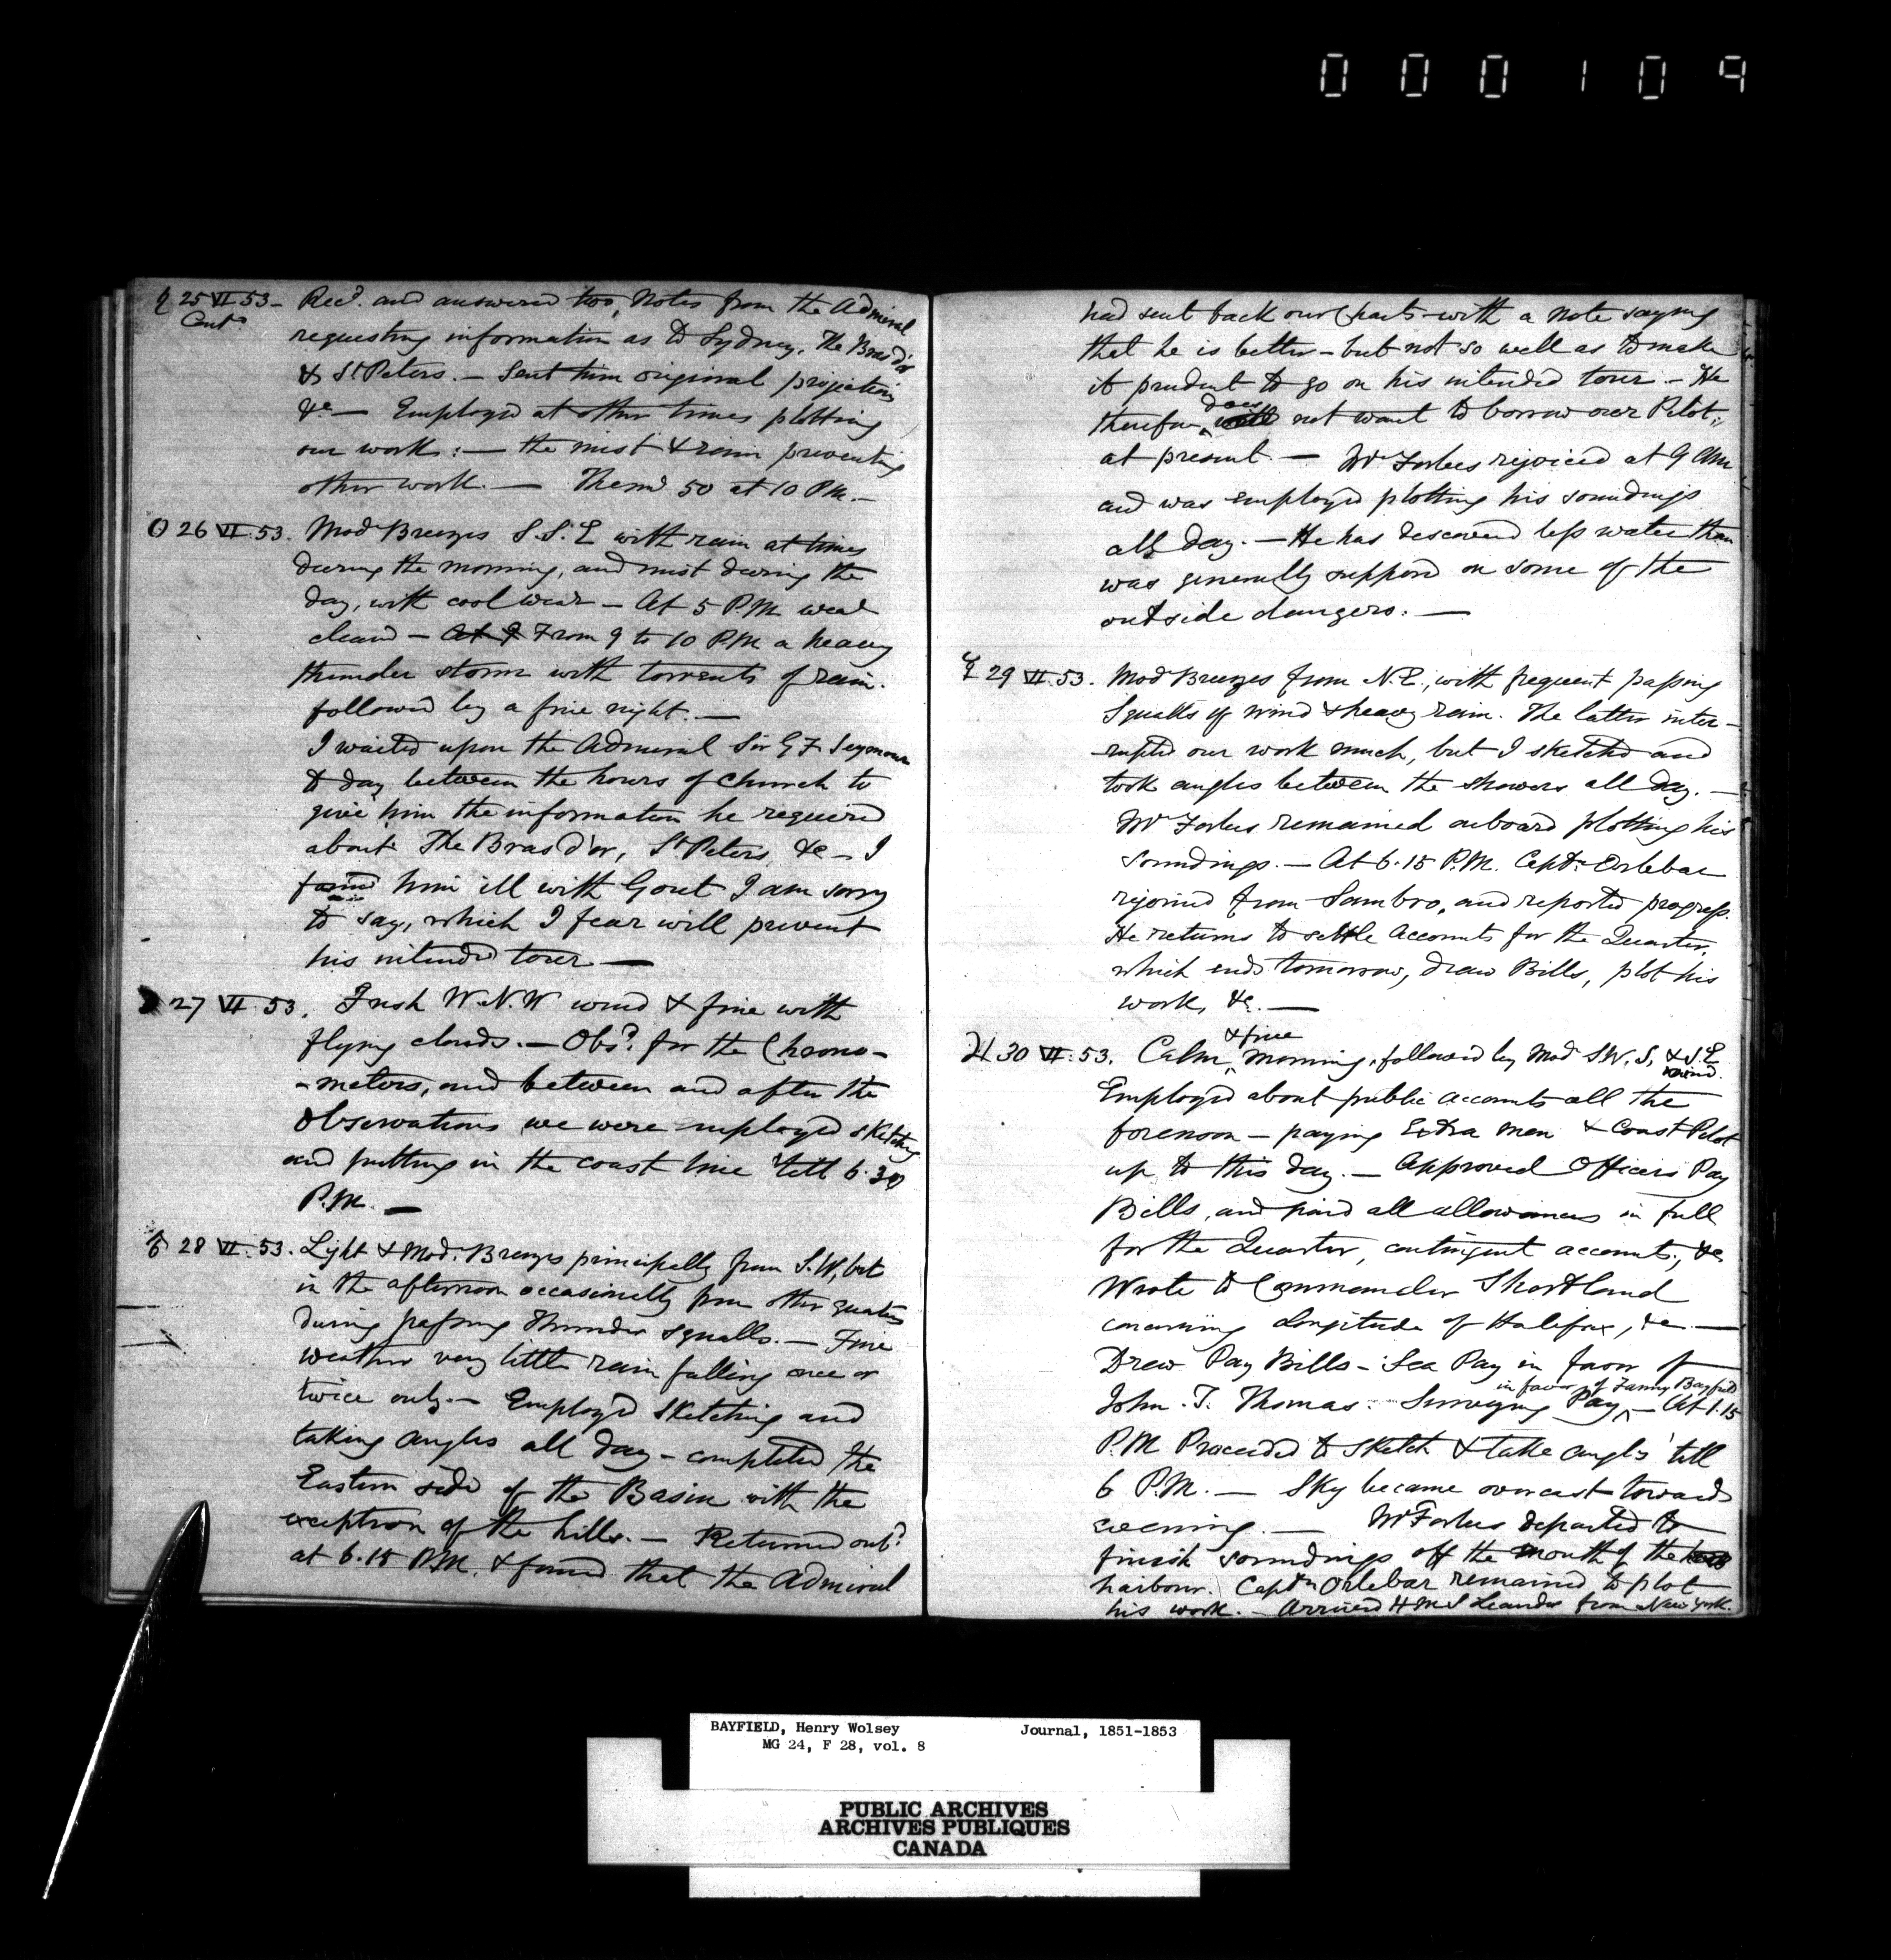 000109
♄ 25 VI 53 – Recd. and answered two Notes from the Admiral
Contd requesting information as to Sydney, The Bras d'or
& St Peters. – Sent him original projections
&c – Employed at other times plotting
our work: – the mist & rain preventing
other work. – Thermr 50 at 10 P.M. –
☉ 26 VI. 53. Modr Breezes S.S.E with rain at times
during the morning, and mist during the
day, with cool wear – At 5 P.M. wear
cleared – At 9 From 9 to 10 P.M. a heavy
thunder storm with torrents of rain.
followed by a fine night. –
I waited upon the Admiral Sir G F Seymour
to day between the hours of Church to
give him the information he required
about The Bras d'or, St Peters, &c – I
found him ill with Gout I am sorry
to say, which I fear will prevent
his intended tour –
☽ 27 VI. 53. Fresh W.N.W wind & fine with
flying clouds. – Obsd. for the Chrono-
-meters, and between and after the
Observations we were employed sketching
and putting in the coast line 'till 6.30
P.M. –
♂ 28 VI. 53. Light & Mod. Breezes principally from S.W, but
in the afternoon occasionally from other quarters
during passing Thunder squalls. – Fine
weather very little rain falling once or
twice only. – Employed sketching and
taking angles all day – completed the
Eastern side of the Basin with the
exception of the hills. – Returned onbd
at 6.15 P.M. & found that the Admiral
had sent back our Charts with a note saying
that he is better – but not so well as to make
it prudent to go on his intended tour – He
does
therefore not want to borrow our Pilot,
at present. – Mr Forbes rejoined at 9 AM
and was employed plotting his soundings
all day. – He has discovered less water than
was generally supposed on some of the
outside dangers. –
☿ 29 VI. 53. Modr Breezes from N.E., with frequent passing
Squalls of wind & heavy rain. The latter inter-
-rupted our work much, but I sketched and
took angles between the showers all day. –
Mr Forbes remained onboard plotting his
Soundings. – At 6.15 P.M. Captn Orlebar
rejoined from Sambro, and reported progress.
He returns to settle Accounts for the Quarter,
which ends tomorrow, draw Bills, plot his
work, &c. –
& fine
♃ 30 VI. 53. Calm, morning, followed by Modr S.W. S, & S.E
wind.
Employed about public Accounts all the
forenoon – paying Extra men & Coast Pilot
up to this day. – Approved Officers Pay
Bills, and paid all allowances in full
for the Quarter, contingent accounts, &c
Wrote to Commander Shortland
concerning Longitude of Halifax, &c. –
Drew Pay Bills – Sea Pay in favor of
in favor of Fanny Bayfield
John. T. Thomas. Surveying Pay – At 1.15
P.M Proceeded to sketch & take angles 'till
6 P.M. – Sky became overcast towards
evening. – Mr Forbes departed to
finish soundings off the mouth of the
harbour. Captn Orlebar remained to plot
his work. – Arrived H M S Leander from New York.
BAYFIELD, Henry Wolsey Journal, 1851-1853
MG 24, F 28, vol. 8
PUBLIC ARCHIVES
ARCHIVES PUBLIQUES
CANADA